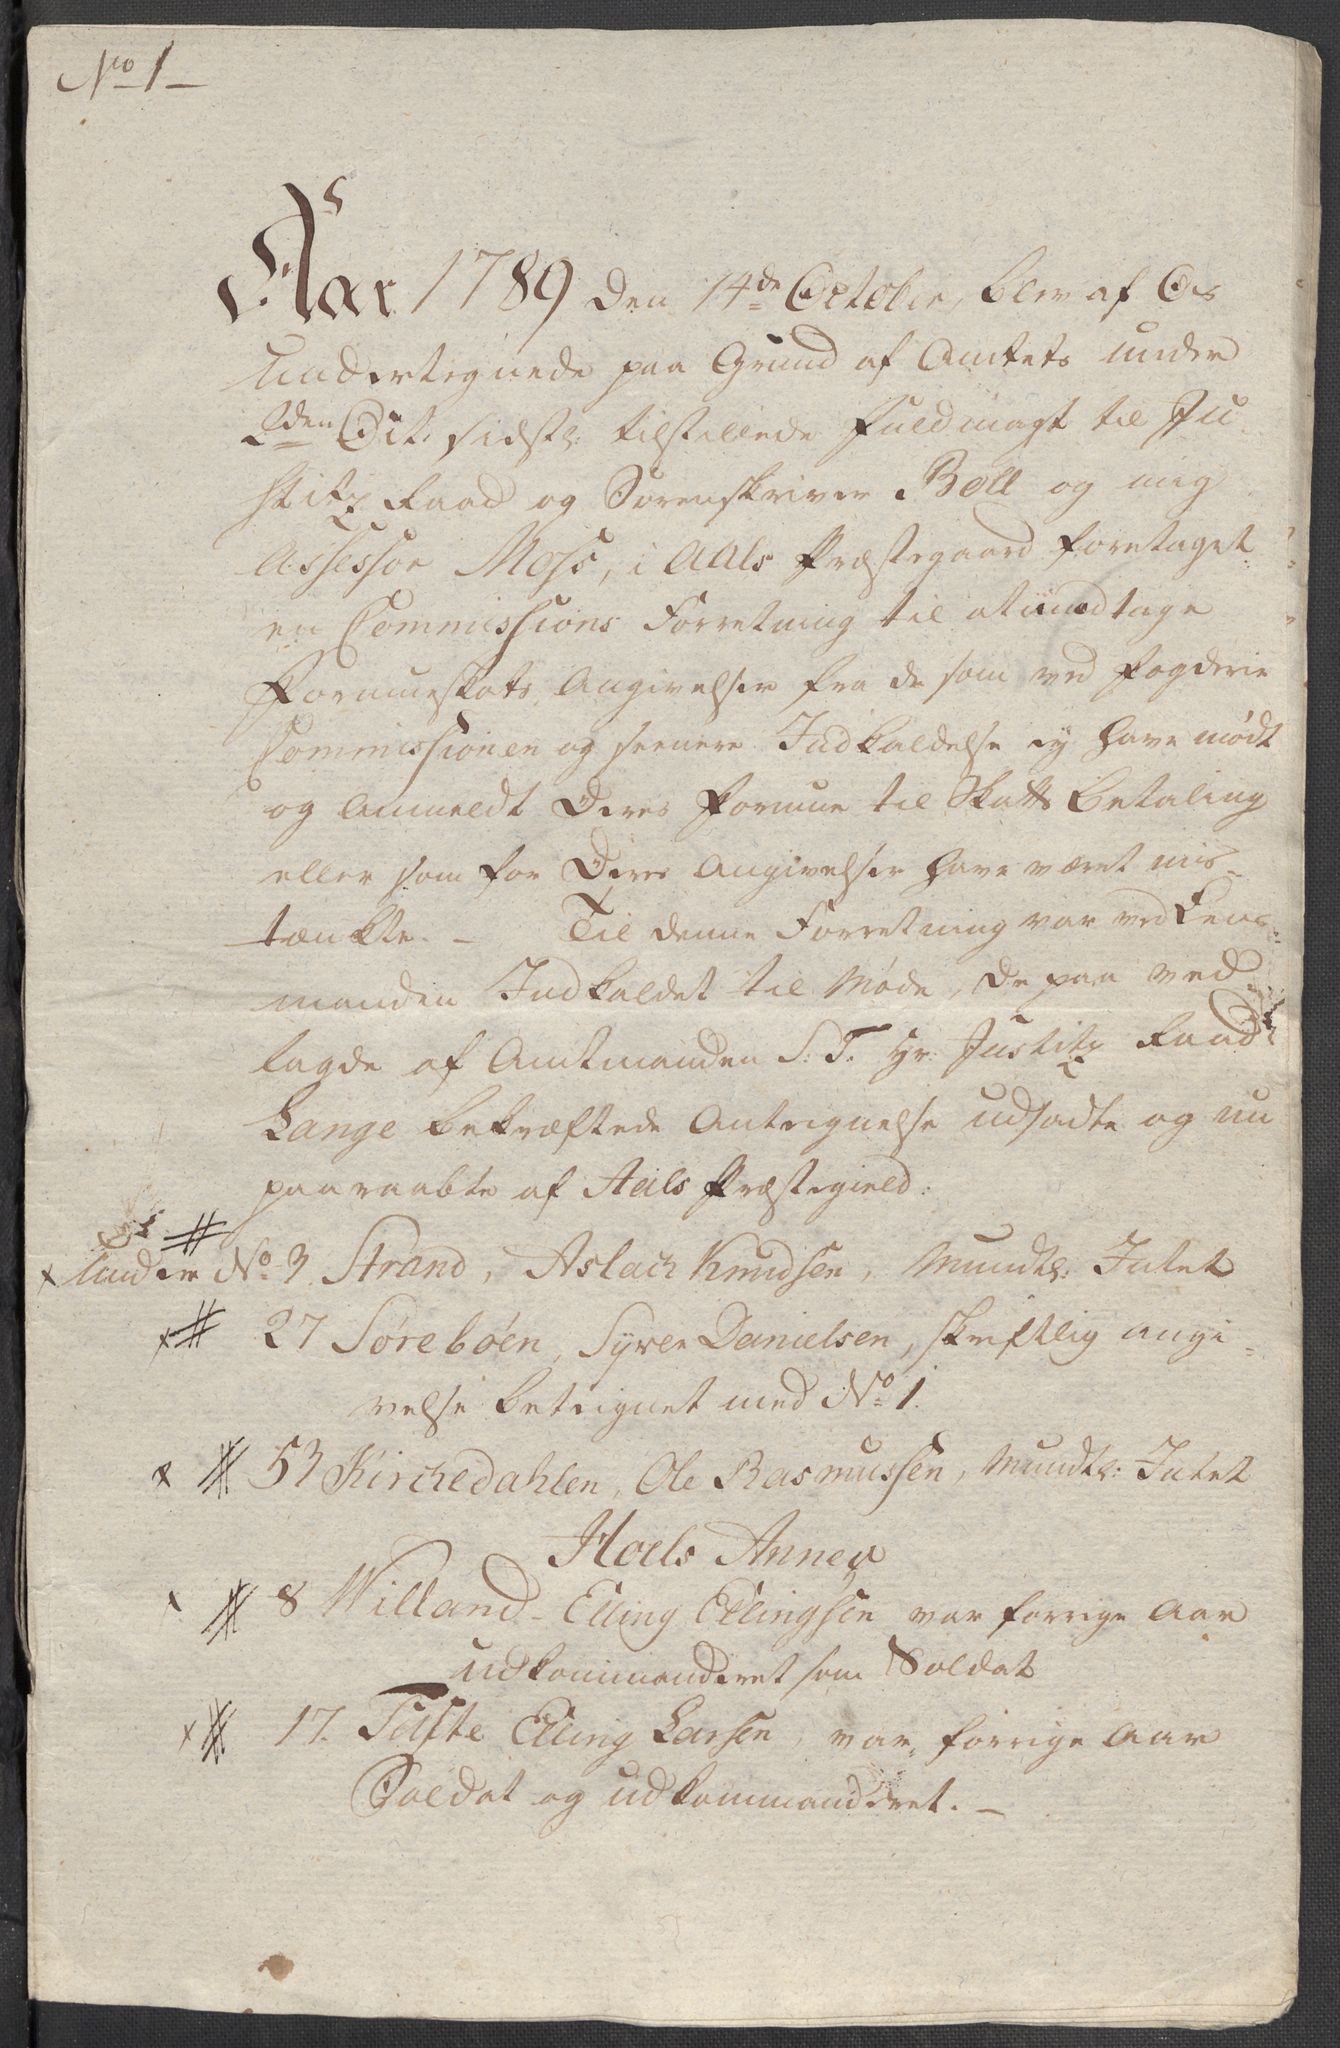 No 1
Aar 1789 den 14de October, blev af Os
Undertegnede paa Grund af Amtets under
2den Dit. sidstl: tilstillede Fuldmagt til Ju
stitz Raad og Sorenskriver Boll og mig
Assessor Moss, i Aals Præstegaard foretaget
en Commissions Forretning til at imodtage
Formueskats Angivelser fra de som ved Fogderie
Commissionen og seenere Indkaldelse ey have mødt
og Anmeldt Deres Formue til Skatts betaling
eller som for Deres Angivelser have været mis-
tænkte. - Til denne Forretning var ved Lens-
manden Indkaldet til Møde, de paa ved
lagde af Amtmanden S: T. Hr: Justitz Raad
Lange bekræftede Antegnelse udsadte og nu
paaraabte af Aals Præstegield:
Under No 3 Strand, Aslach Knudsen, Mundtl: Intet
27 Sørebøen, Syver Danielsen, skriftlig angi-
velse betegnet med No 1.
53 Kirchedahlen, Ole Rasmussen, Mundtl: Intet
Hoels Annex
8 Willand - Elling Ellingsen var forrige Aar
udkommanderet som Soldat
17. Tufte Elling Larsen, var forrige Aar
Soldat og udkommanderet. -